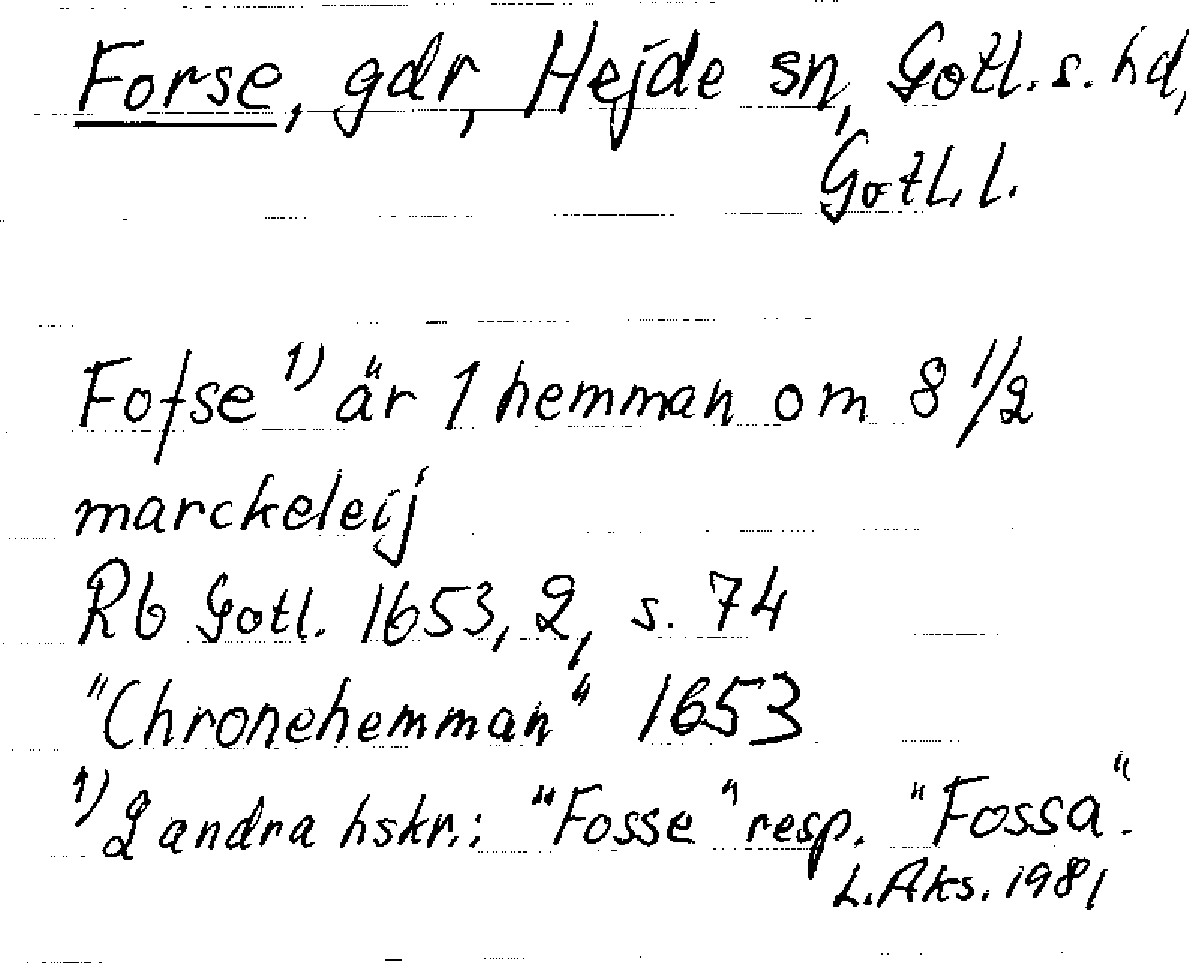 Forse, gdr, Hejde sn, Gotl. s. hd,
Gotl. l.
Foſse 1) är 1 hemman om 8 1/2
marckeleij
Rb Gotl. 1653, 2, s. 74
"Chronehemman" 1653
1) 2 andra hskr.: "Fosse" resp. "Fossa".
L. Aks. 1981